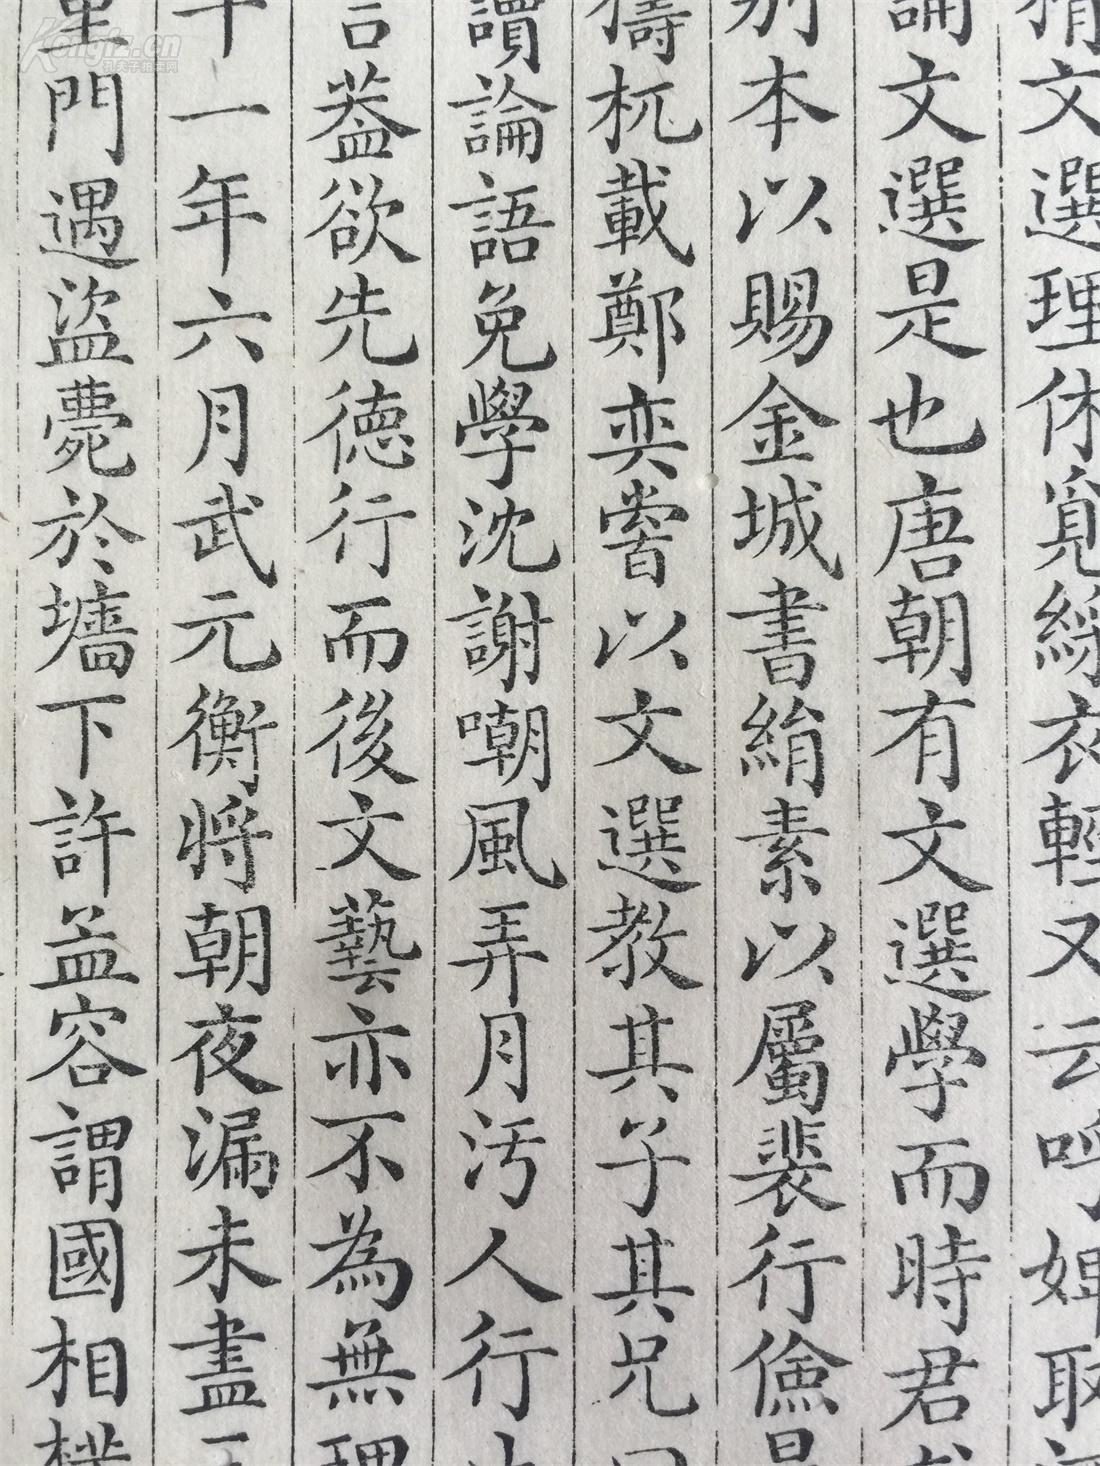 精文選理休覓綵衣輕又云呼婢取
誦文選是也唐朝有文選學而時君
別本以賜金城書絹素以屬裴行儉是
檮杌載鄭奕嘗以文選教其子其兄曰
讀論語免學沈謝嘲風弄月汚人行止
言葢欲先德行而後文藝亦不為無理
十一年六月武元衡將朝夜漏未盡三
里門遇盜薨於墻下許孟容謂國相橫
Kongfz.cn
孔夫子拍卖网